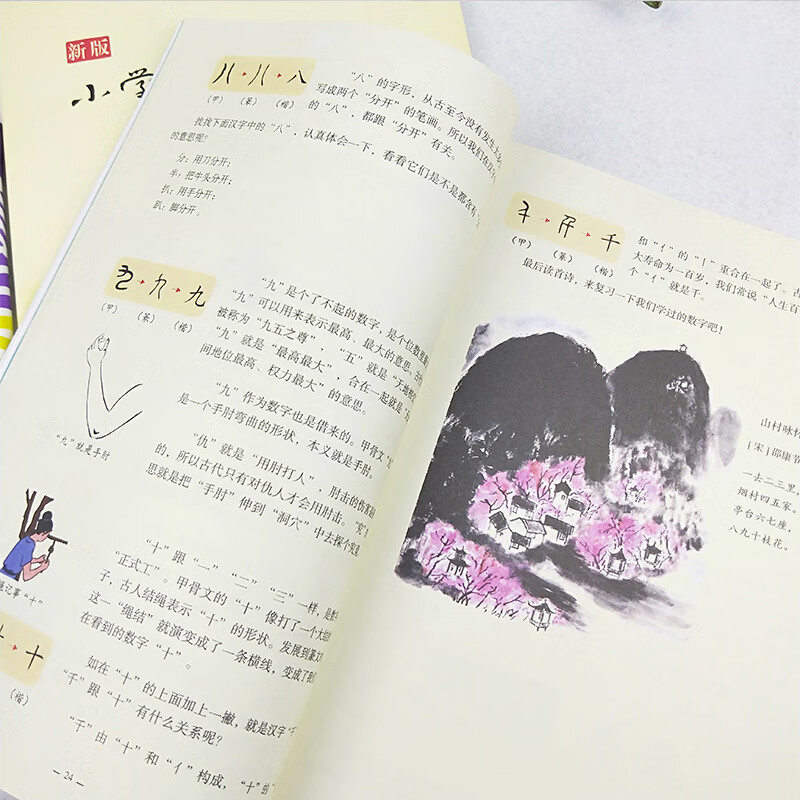 新版
小学
八
（甲）（篆）（楷）
“八”的字形，从古至今没有发生
写成两个“分开”的笔画。所以我们在
的“八”，都跟“分开”有关。
找找下面汉字中的“八”，认真体会一下，看看它们是不是都含有
的意思呢？
分：用刀分开；
半：把牛头分开；
扒：用手分开；
趴：脚分开。
九
（甲）（篆）（楷）
“九”是个了不起的数字，是个位数里
“九”可以用来表示最高、最大的意思。
被称为“九五之尊”，“五”就是“天地
“九”就是“最高最大”，合在一起就是
间地位最高、权力最大”的意思。
“九”作为数字也是借来的。甲骨文“
是一个手肘弯曲的形状，本义就是手肘。
“九”就是手肘
“仇”就是“用肘打人”，肘击的伤害
的，所以古代只有对仇人才会用肘击。“究”
思就是把“手肘”伸到“洞穴”中去探个究竟
“十”跟“一”“二”“三”一样，是
“正式工”。甲骨文的“十”像打了一个大
子，古人结绳表示“十”的形状。发展到篆文
这一“绳结”就演变成了一条横线，变成了我们
在看到的数字“十”。
记事“十”
十
（楷）
如在“十”的上面加上一撇，就是汉字“千
“千”跟“十”有什么关系呢？
“千”由“十”和“亻”构成，“十”
— 24 —
千
（甲）（篆）（楷）
和“亻”的“丨”重合在一起了。古
大寿命为一百岁，我们常说“人生百
个“亻”就是千。
最后读首诗，来复习一下我们学过的数字吧！
山村咏怀
[宋]邵康节
一去二三里，
烟村四五家。
亭台六七座，
八九十枝花。